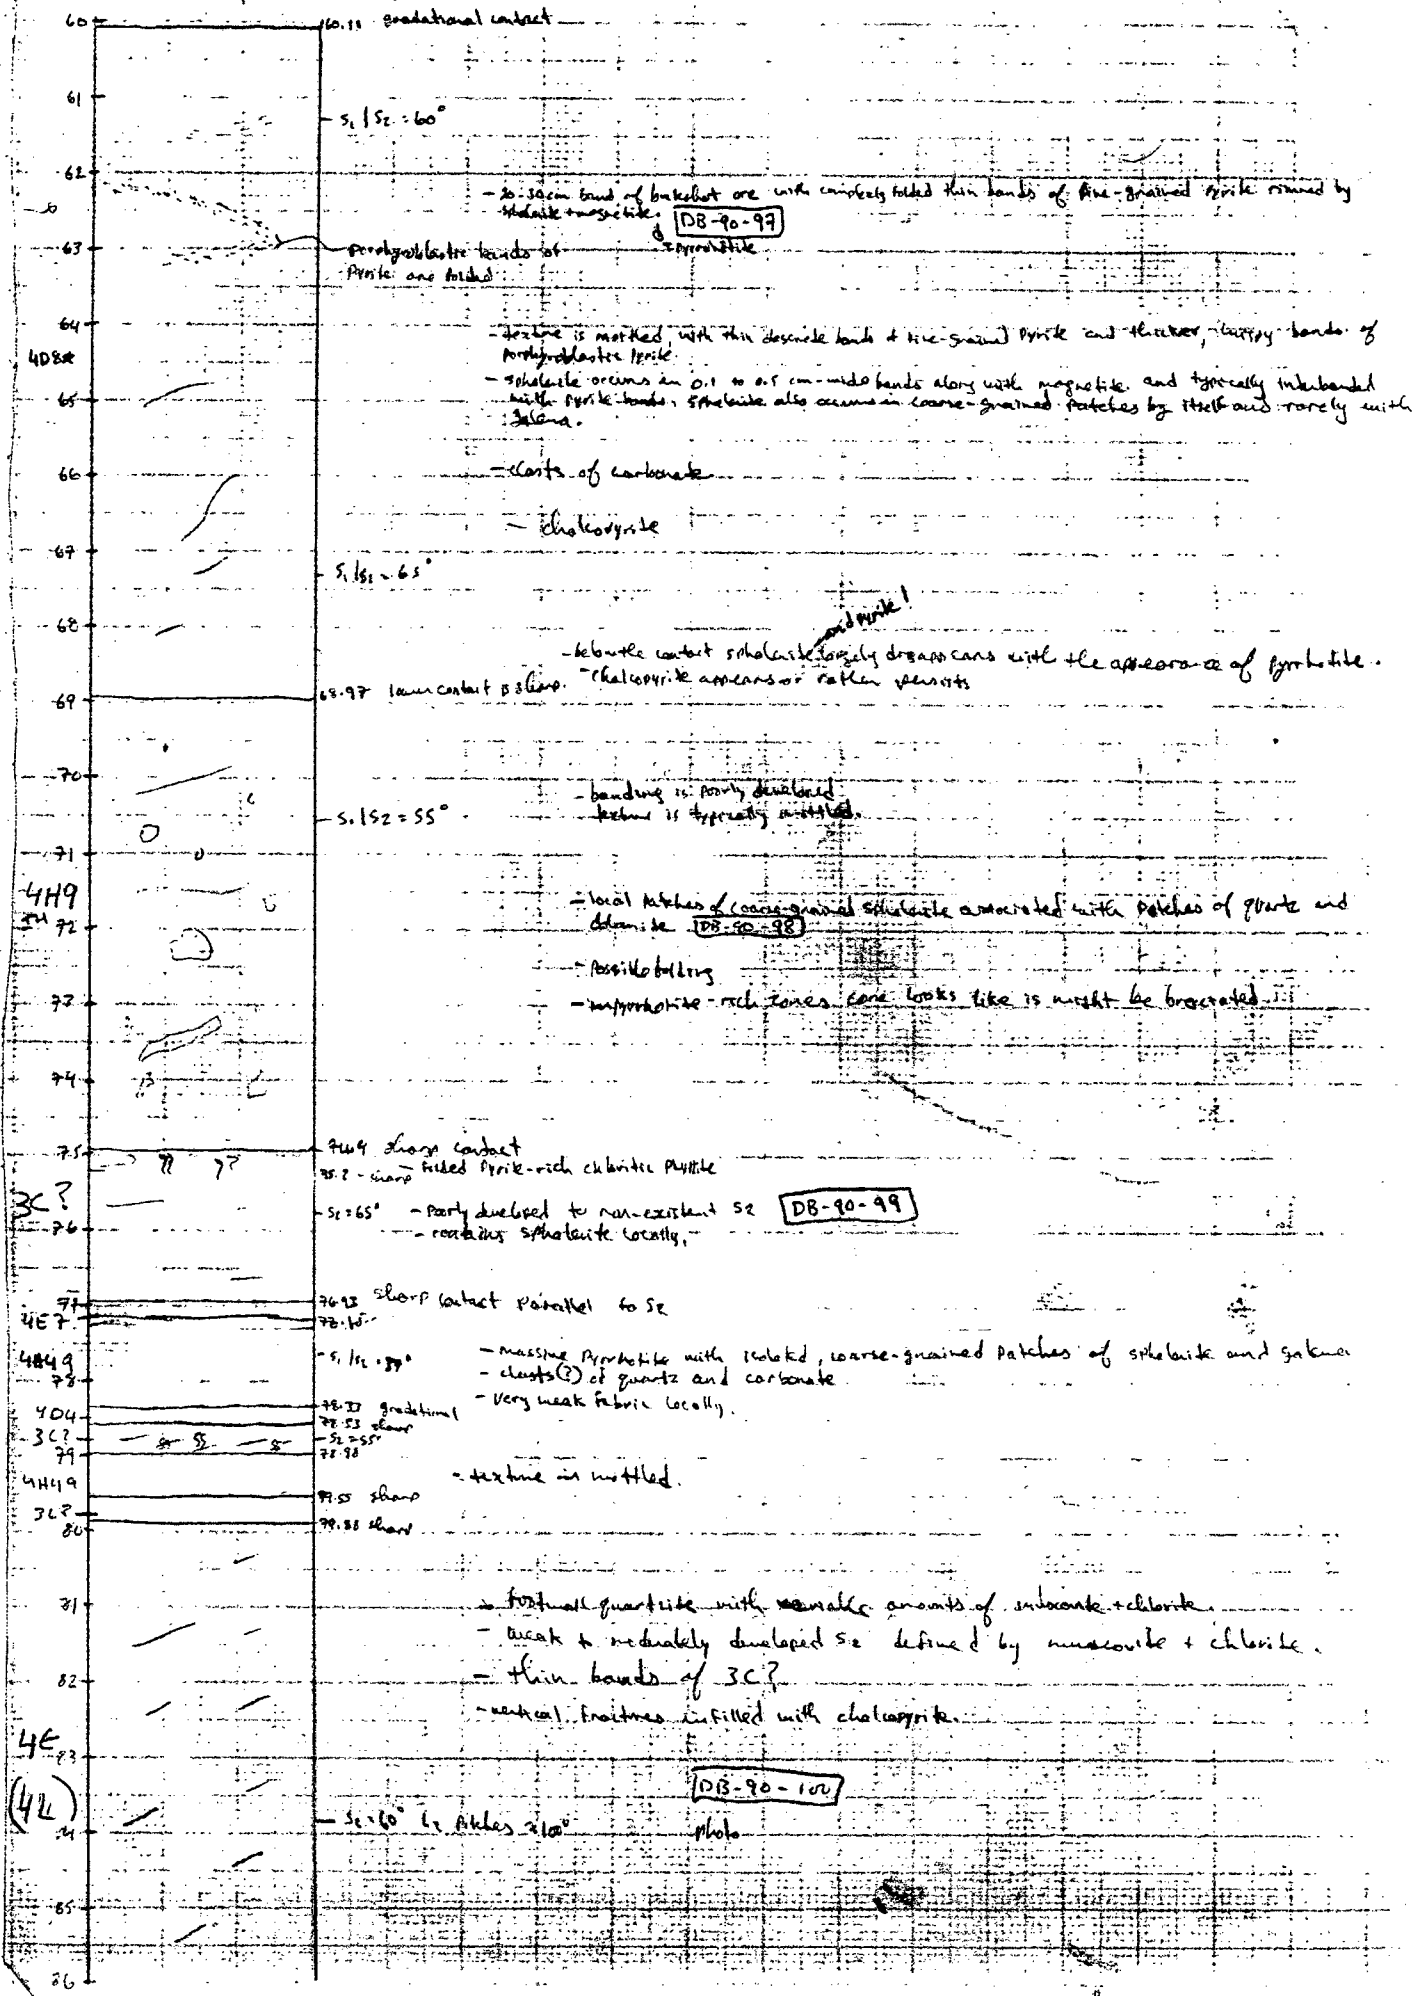 60 60.11 gradational contact
61
- S1/S2 = 60°
62
- 20-30cm band of buckshot ore with complexly folded thin bands of fine-grained pyrite rimmed by
sphalerite + magnetite. DB-90-97
+ pyrrhotite
63
porphyroblastic bands of
Pyrite are folded
64
- texture is mottled, with thin descrete bands of fine-grained pyrite and thicker, wispy bands of
porphyroblastic pyrite.
4D8*
- sphalerite occurs in 0.1 to 0.5 cm-wide bands along with magnetite and typically interbanded
65
with pyrite bands. Sphalerite also occurs in coarse-grained patches by itself and rarely with
galena.
66
- clasts of carbonate
- chalcopyrite
67
- S1/S2 = 65°
and pyrite!
68
- below the contact sphalerite largely disappears with the appearance of pyrrhotite.
- chalcopyrite appears or rather persists
69 68.97 lower contact is sharp.
70
- banding is poorly developed
- S1/S2 = 55° texture is typically mottled.
71
4H9
- local patches of coarse-grained sphalerite associated with patches of quartz and
72 dolomite DB-90-98
- Possible folding
73 - in pyrrhotite-rich zones core looks like is might be brecciated
74
75 sharp contact
75.2 - sharp - folded pyrite-rich chloritic phyllite
3C?
- S2 = 65° - poorly developed to non-existent S2 DB-90-99
76
- contains sphalerite locally,
77 76.93 sharp contact parallel to S2
4E7
- S1/S2 - massive pyrrhotite with isolated, coarse-grained patches of sphalerite and galena
78 - clasts(?) of quartz and carbonate
78.33 gradational - very weak fabric locally.
4D4 78.53 sharp
3C? - S2 = 55°
79
4H49 - texture is mottled.
79.55 sharp
3C?
80 79.88 sharp
81 - footwall quartzite with variable amounts of + chlorite.
- weak to moderately developed S2 defined by muscovite + chlorite.
82 - thin bands of 3C?
- vertical fractures infilled with chalcopyrite.
4E
83
DB-90-100
(4L)
- S2 = 60° L2 pitches 100° photo
84
85
86